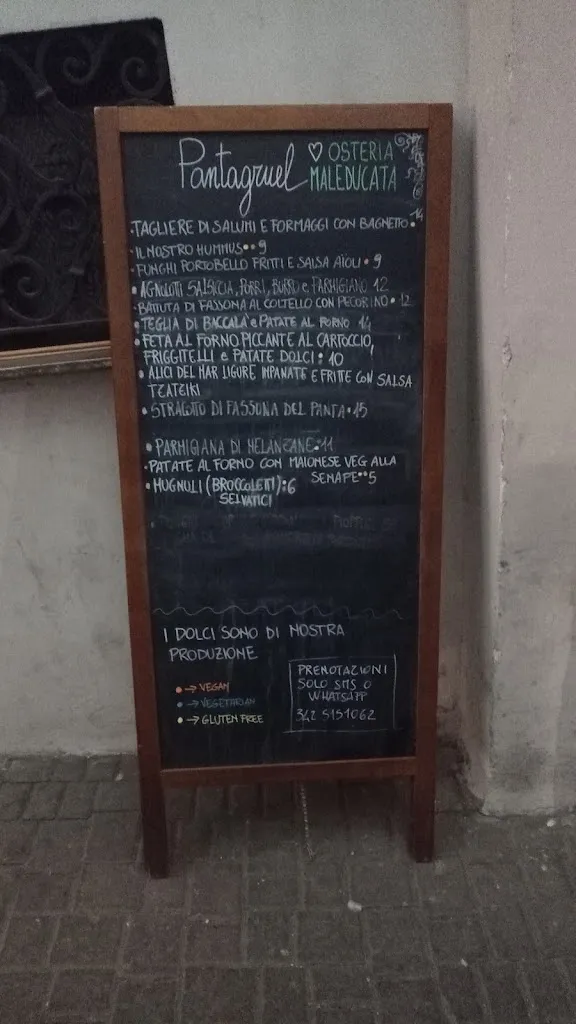 Pantagruel ♡ OSTERIA
MALEDUCATA
• TAGLIERE DI SALUMI E FORMAGGI CON BAGNETTO • 14
• IL NOSTRO HUMMUS •• 9
• FUNGHI PORTOBELLO FRITTI E SALSA AIOLI • 9
• AGNOLOTTI SALSICCIA, PORRI, BURRO e PARMIGIANO 12
• BATTUTA DI FASSONA AL COLTELLO CON PECORINO • 12
• TEGLIA DI BACCALÀ e PATATE AL FORNO 14
• FETA AL FORNO PICCANTE AL CARTOCCIO,
FRIGGITELLI e PATATE DOLCI : 10
• ALICI DEL MAR LIGURE IMPANATE E FRITTE CON SALSA
TZATZIKI
• STRACOTTO DI FASSONA DEL PANTA • 15
• PARMIGIANA DI MELANZANE • 11
• PATATE AL FORNO CON MAIONESE VEG ALLA
SENAPE •• 5
• MUGNULI (BROCCOLETTI) : 6
SELVATICI
I DOLCI SONO DI NOSTRA
PRODUZIONE
• → VEGAN
• → VEGETARIAN
• → GLUTEN FREE
PRENOTAZIONI
SOLO SMS O
WHATSAPP
342 5151062